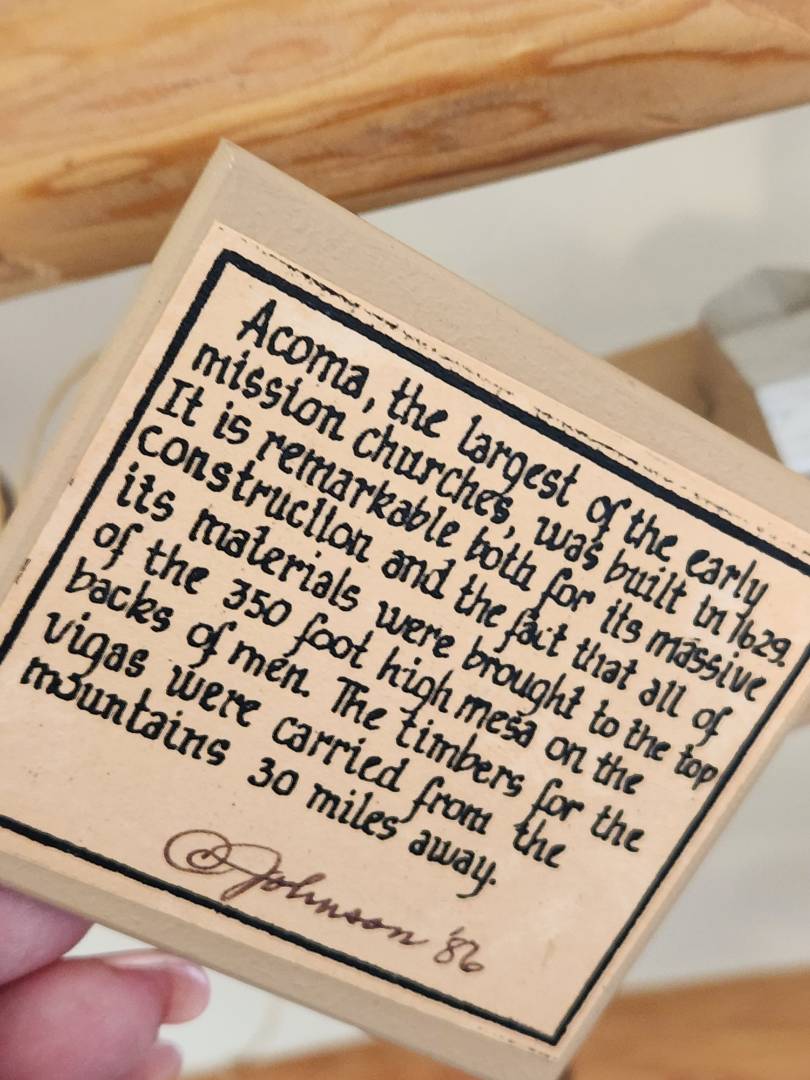 Acoma, the largest of the early
mission churches, was built in 1629.
It is remarkable both for its massive
construction and the fact that all of
its materials were brought to the top
of the 350 foot high mesa on the
backs of men. The timbers for the
vigas were carried from the
mountains 30 miles away.
© Johnson '86